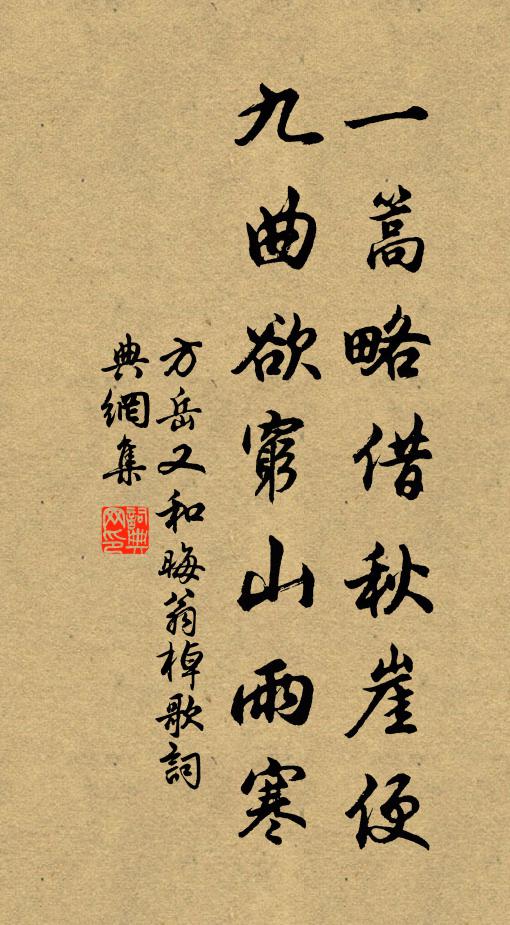 一篙略借秋崖便
九曲欲窮山雨寒
方岳又和晦翁棹歌詞
典網集
詞典網印